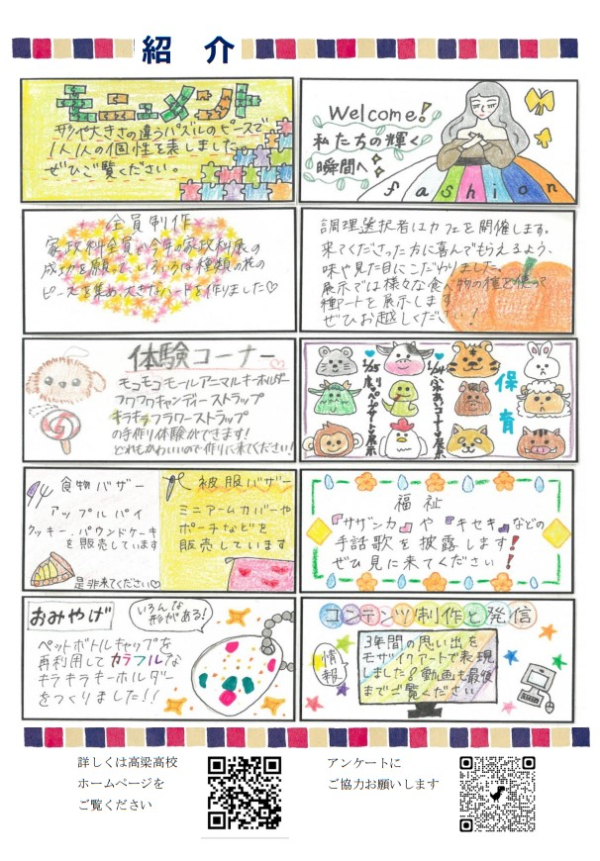 紹 介
モニュメント
形や大きさの違うパズルのピースで
1人1人の個性を表しました。
ぜひご覧ください。
Welcome!
私たちの輝く
瞬間へ
fashion
全員制作
家政科全員で今年の家政科展の
成功を願って、いろいろな種類の花の
ピースを集め、大きなハートを作りました♡
調理選択者はカフェを開催します。
来てくださった方に喜んでもらえるよう、
味や見た目にこだわりました。
展示では様々な食べ物の種を使って
種アートを展示します
ぜひお越しください!
体験コーナー
モコモコモールアニマルキーホルダー
フワフワキャンディーストラップ
キラキラフラワーストラップ
の手作り体験ができます!
どれもかわいいので作りに来てください!
保育
1/24
ふれあいコーナー展示
1/25
展示
食物バザー
アップルパイ
クッキー、パウンドケーキ
を販売しています
是非来てください♡
被服バザー
ミニアームカバーや
ポーチなどを
販売しています
福祉
『サザンカ』や『キセキ』などの
手話歌を披露します!
ぜひ見に来てください!
おみやげ
いろんな
形がある!
ペットボトルキャップを
再利用してカラフルな
キラキラキーホルダー
をつくりました!!
コンテンツ制作と発信
情報
3年間の思い出を
モザイクアートで表現
しました!動画も最後
までご覧ください
詳しくは高梁高校
ホームページを
ご覧ください
アンケートに
ご協力お願いします